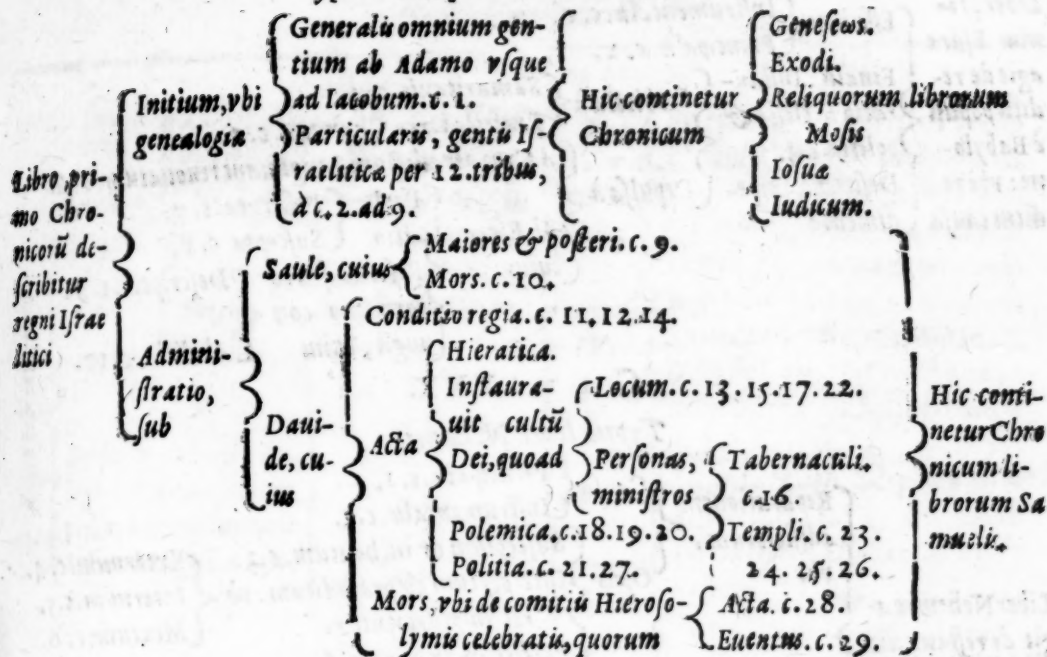 Libro pri-
mo Chro-
nicorũ de-
scribitur
regni Israe
litici
Initium, vbi
genealogia
Generalis omnium gen-
tium ab Adamo vsque
ad Iacobum. c. 1.
Particularis, gentis Is-
raeliticæ per 12. tribus,
à c. 2. ad 9.
Hic continetur
Chronicum
Geneseωs.
Exodi.
Reliquorum librorum
Mosis
Iosuæ
Iudicum.
Admini-
stratio,
sub
Saule, cuius
Maiores & posteri. c. 9.
Mors. c. 10.
Daui-
de, cu-
ius
Conditio regia. c. 11. 12. 14.
Acta
Hieratica.
Instaura-
uit cultũ
Dei, quoad
Locum. c. 13. 15. 17. 22.
Personas,
ministros
Tabernaculi.
c. 16.
Templi. c. 23.
24. 25. 26.
Polemica. c. 18. 19. 20.
Politia. c. 21. 27.
Mors, vbi de comitiis Hieroso-
lymis celebratis, quorum
Acta. c. 28.
Euentus. c. 29.
Hic conti-
netur Chro
nicum li-
brorum Sa
muelis.